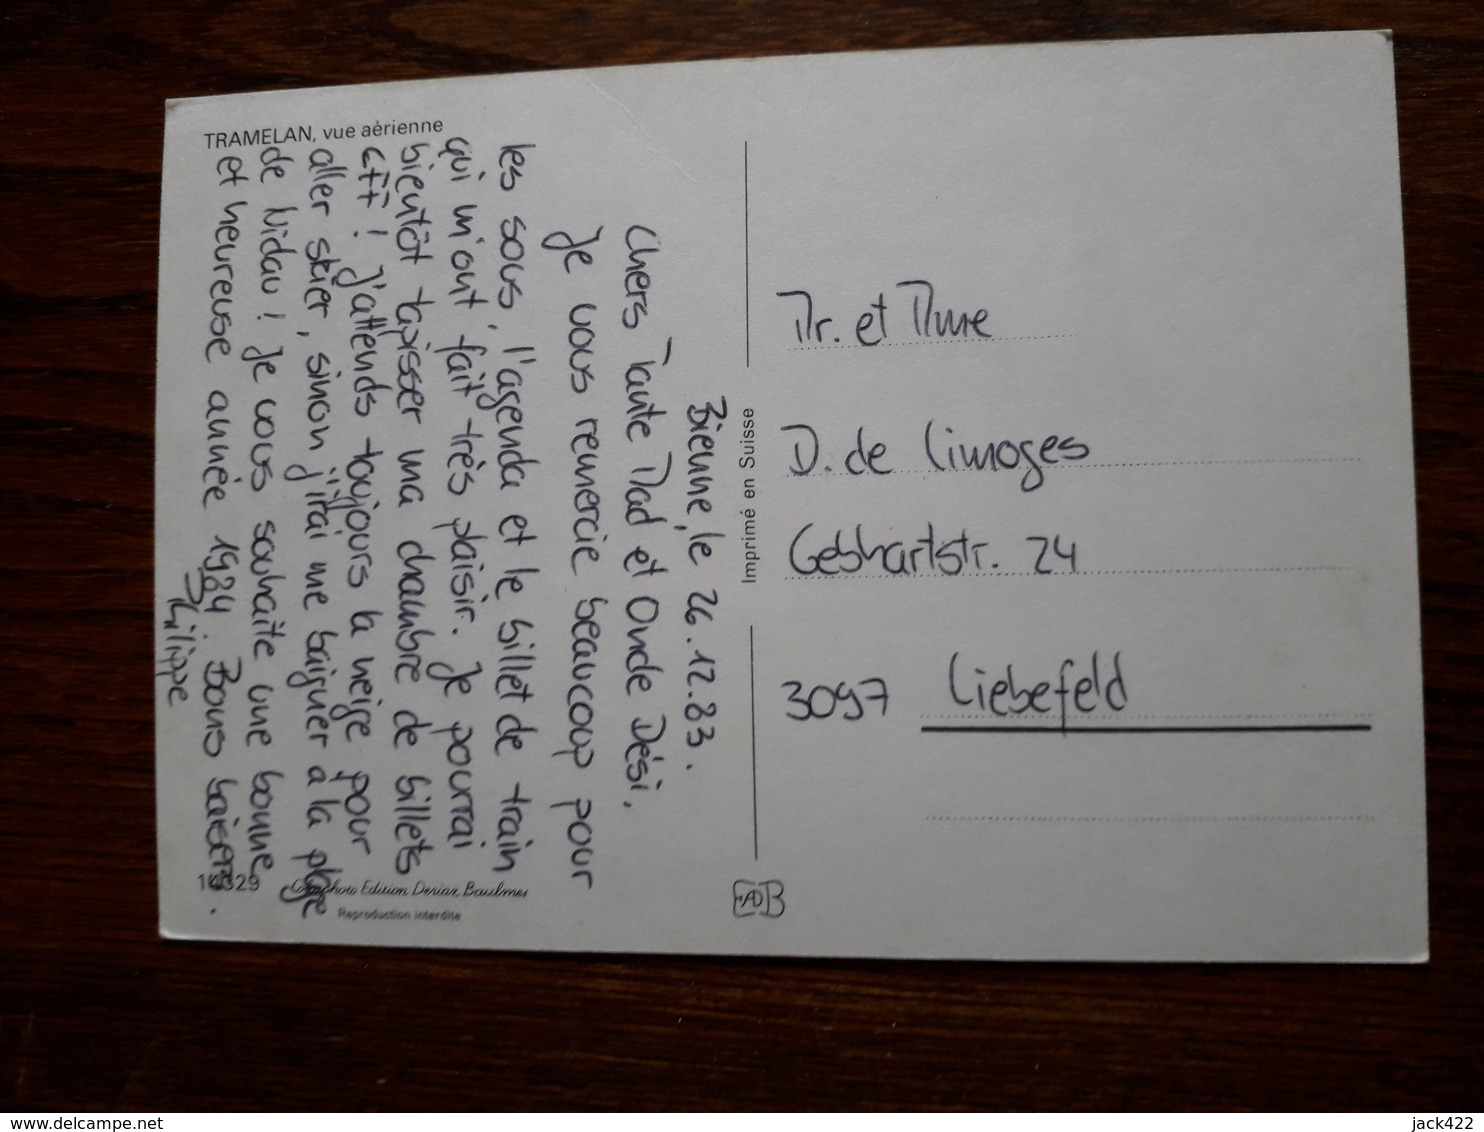 TRAMELAN, vue aérienne
Bienne, le 26.12.83.
Chers Tante Mad et Oncle Dési,
Je vous remercie beaucoup pour
les sous, l'agenda et le billet de train
qui m'ont fait très plaisir. Je pourrai
bientôt tapisser ma chambre de billets
CFF ! J'attends toujours la neige pour
aller skier, sinon j'irai me baigner à la plage
de Nidau ! Je vous souhaite une bonne
et heureuse année 1984. Bons baisers.
Philippe
Edition Deriaz, Baulmes
Reproduction interdite
Imprimé en Suisse
Mr. et Mme
D. de Limoges
Gebhartstr. 24
3097 Liebefeld
delcampe.net
jack422